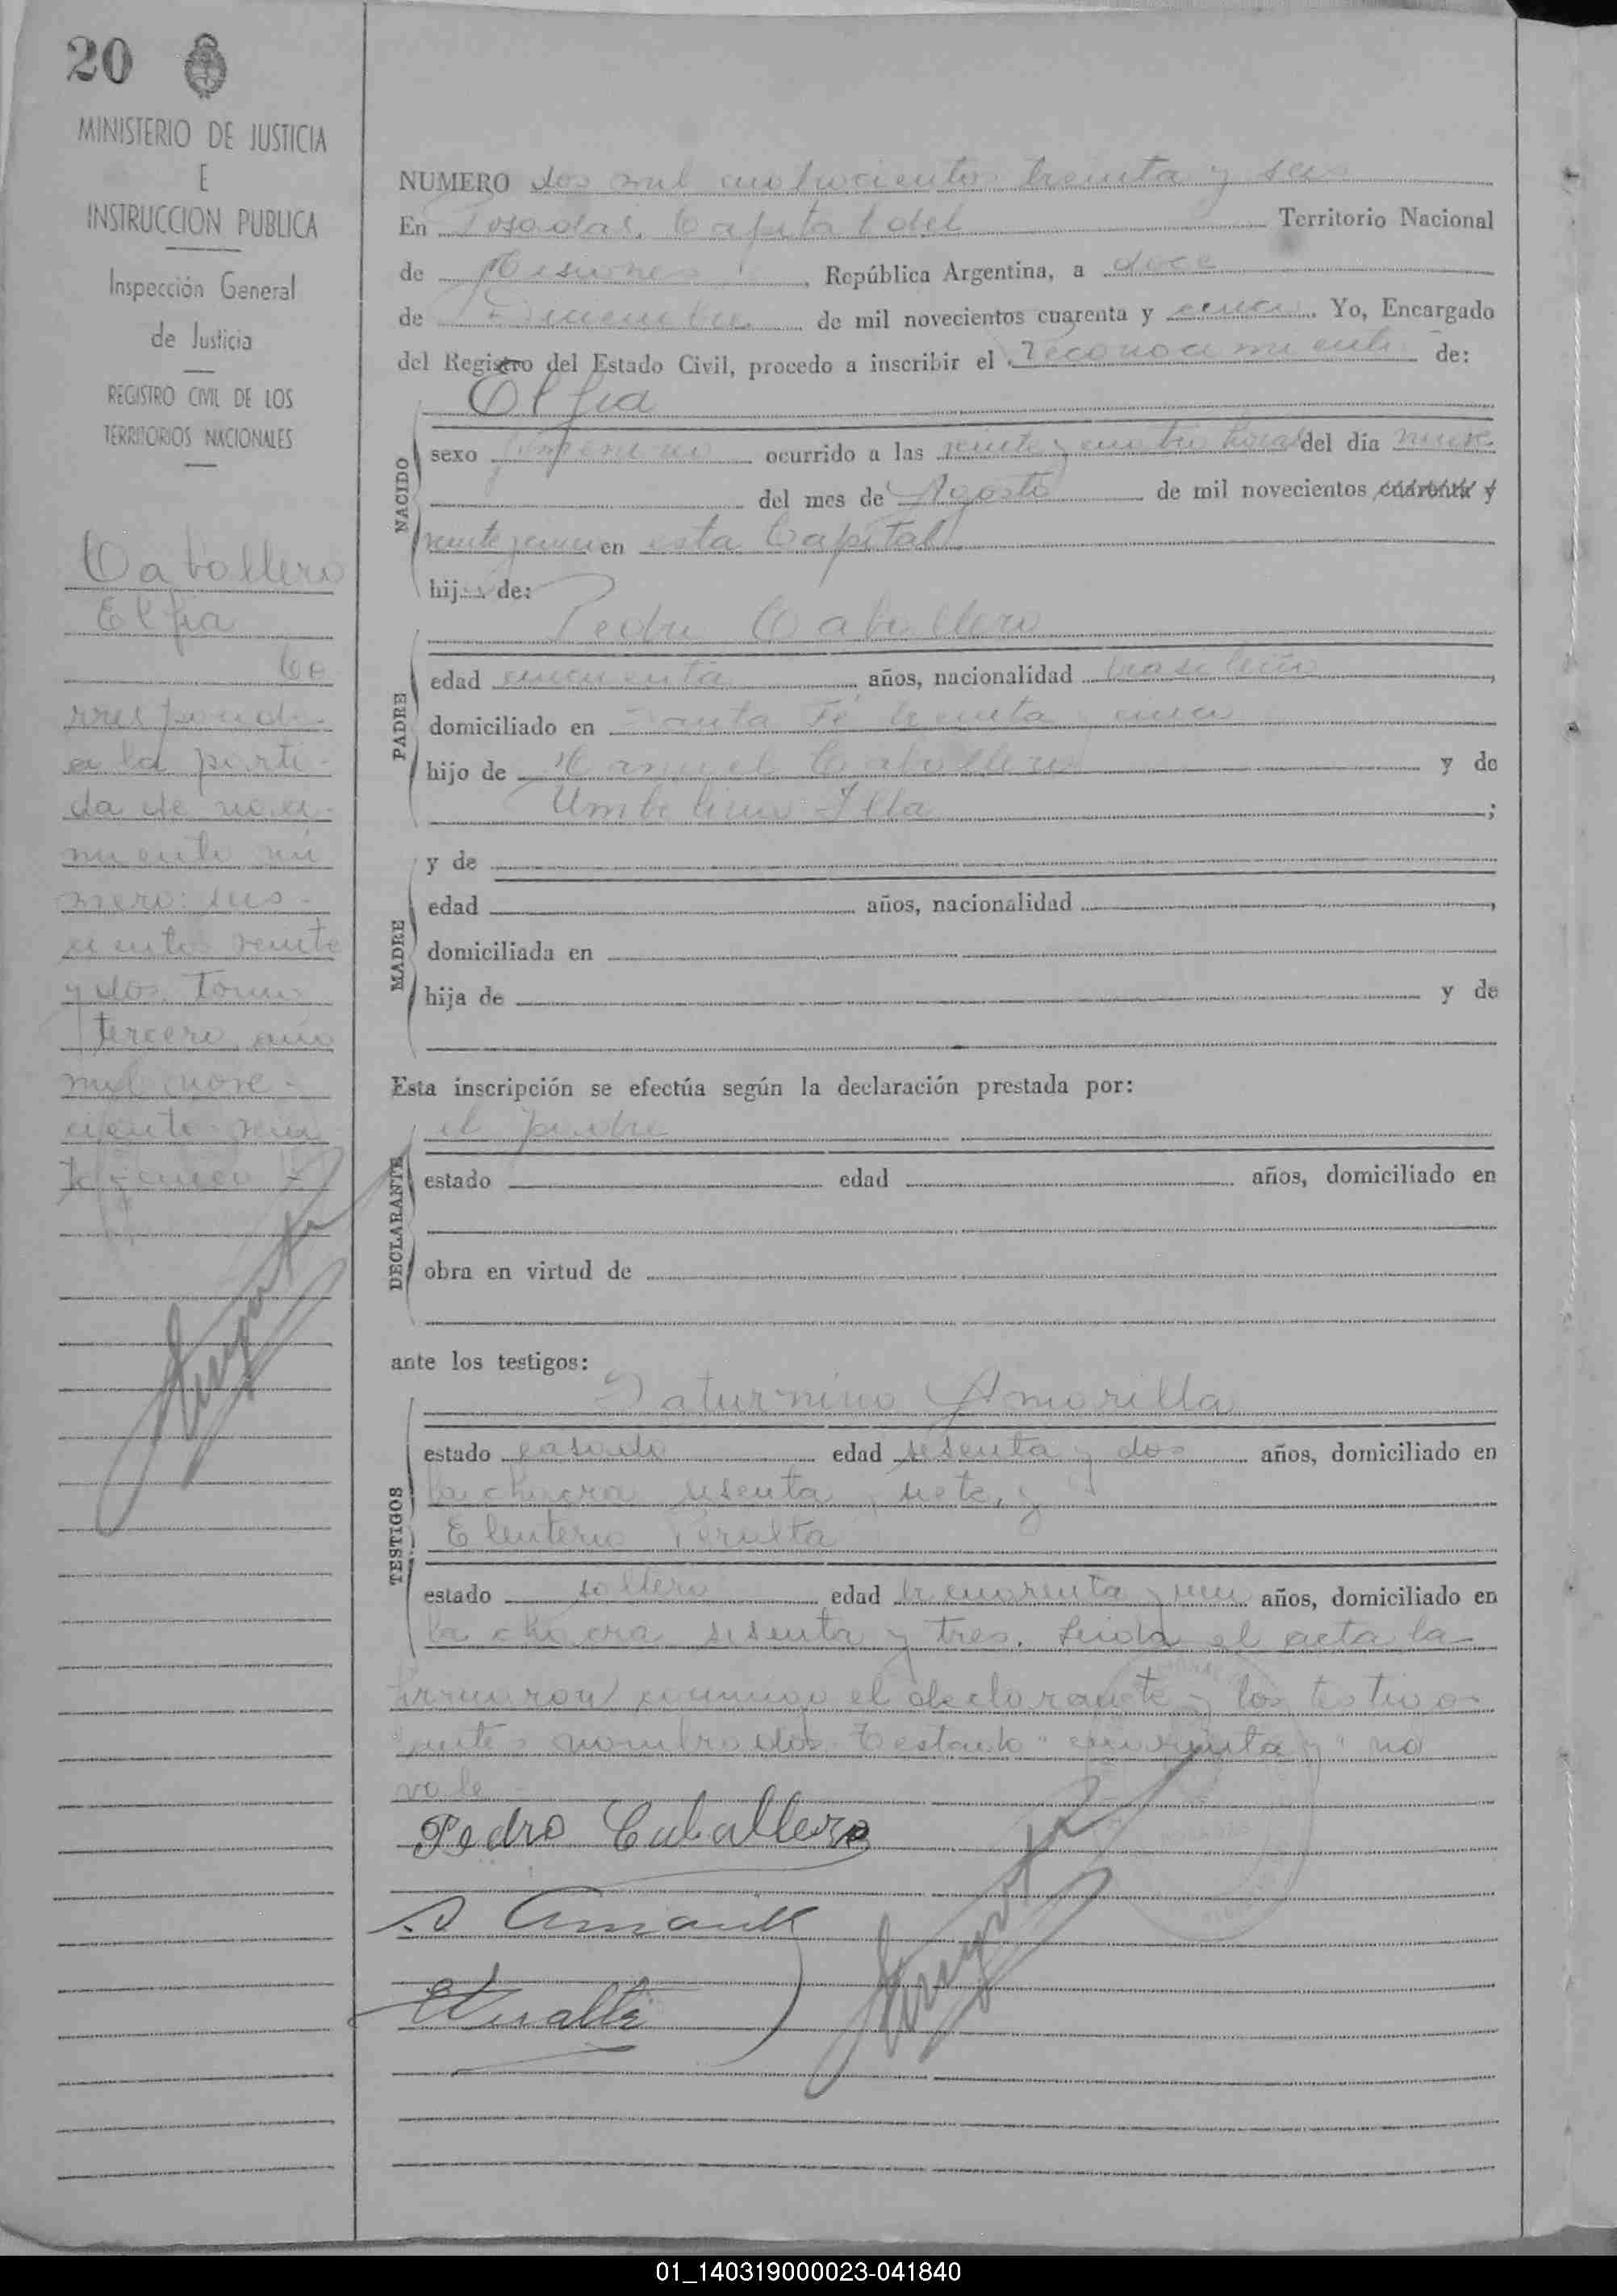 20
MINISTERIO DE JUSTICIA
E
INSTRUCCION PUBLICA
Inspección General
de Justicia
REGISTRO CIVIL DE LOS
TERRITORIOS NACIONALES
Caballero
Elfia
Co
rresponde
a la parti-
da de naci-
miento nú
mero: seis-
cientos veinte
y dos. Tomo
tercero año
mil nove-
ciento vein
te y cinco
NUMERO dos mil cuatrocientos treinta y seis
En Posadas, Capital del Territorio Nacional
de Misiones, República Argentina, a doce
de Diciembre de mil novecientos cuarenta y cinco. Yo, Encargado
del Registro del Estado Civil, procedo a inscribir el Reconocimiento de:
Elfia
NACIDO
sexo femenino ocurrido a las veinte y cuatro horas del día nueve
del mes de Agosto de mil novecientos cuarenta y
veinte y cinco en esta Capital
hija de:
Pedro Caballero
PADRE
edad cincuenta años, nacionalidad brasileño,
domiciliado en Santa Fé treinta cinco
hijo de Manuel Caballero y de
Umbelina Illa;
MADRE
y de
edad años, nacionalidad,
domiciliada en
hija de y de
Esta inscripción se efectúa según la declaración prestada por:
el padre
DECLARANTE
estado edad años, domiciliado en
obra en virtud de
ante los testigos:
Saturnino Amarilla
TESTIGOS
estado casado edad sesenta y dos años, domiciliado en
la chacra sesenta siete, y
Eleuterio Peralta
estado soltero edad cuarenta y un años, domiciliado en
la chacra sesenta y tres. Leida el acta la
firmaron conmigo el declarante y los testigos
antes nombrados. Testado "cuarenta y" no
vale
Pedro Caballero
S Amarilla
E Peralta
01_140319000023-041840